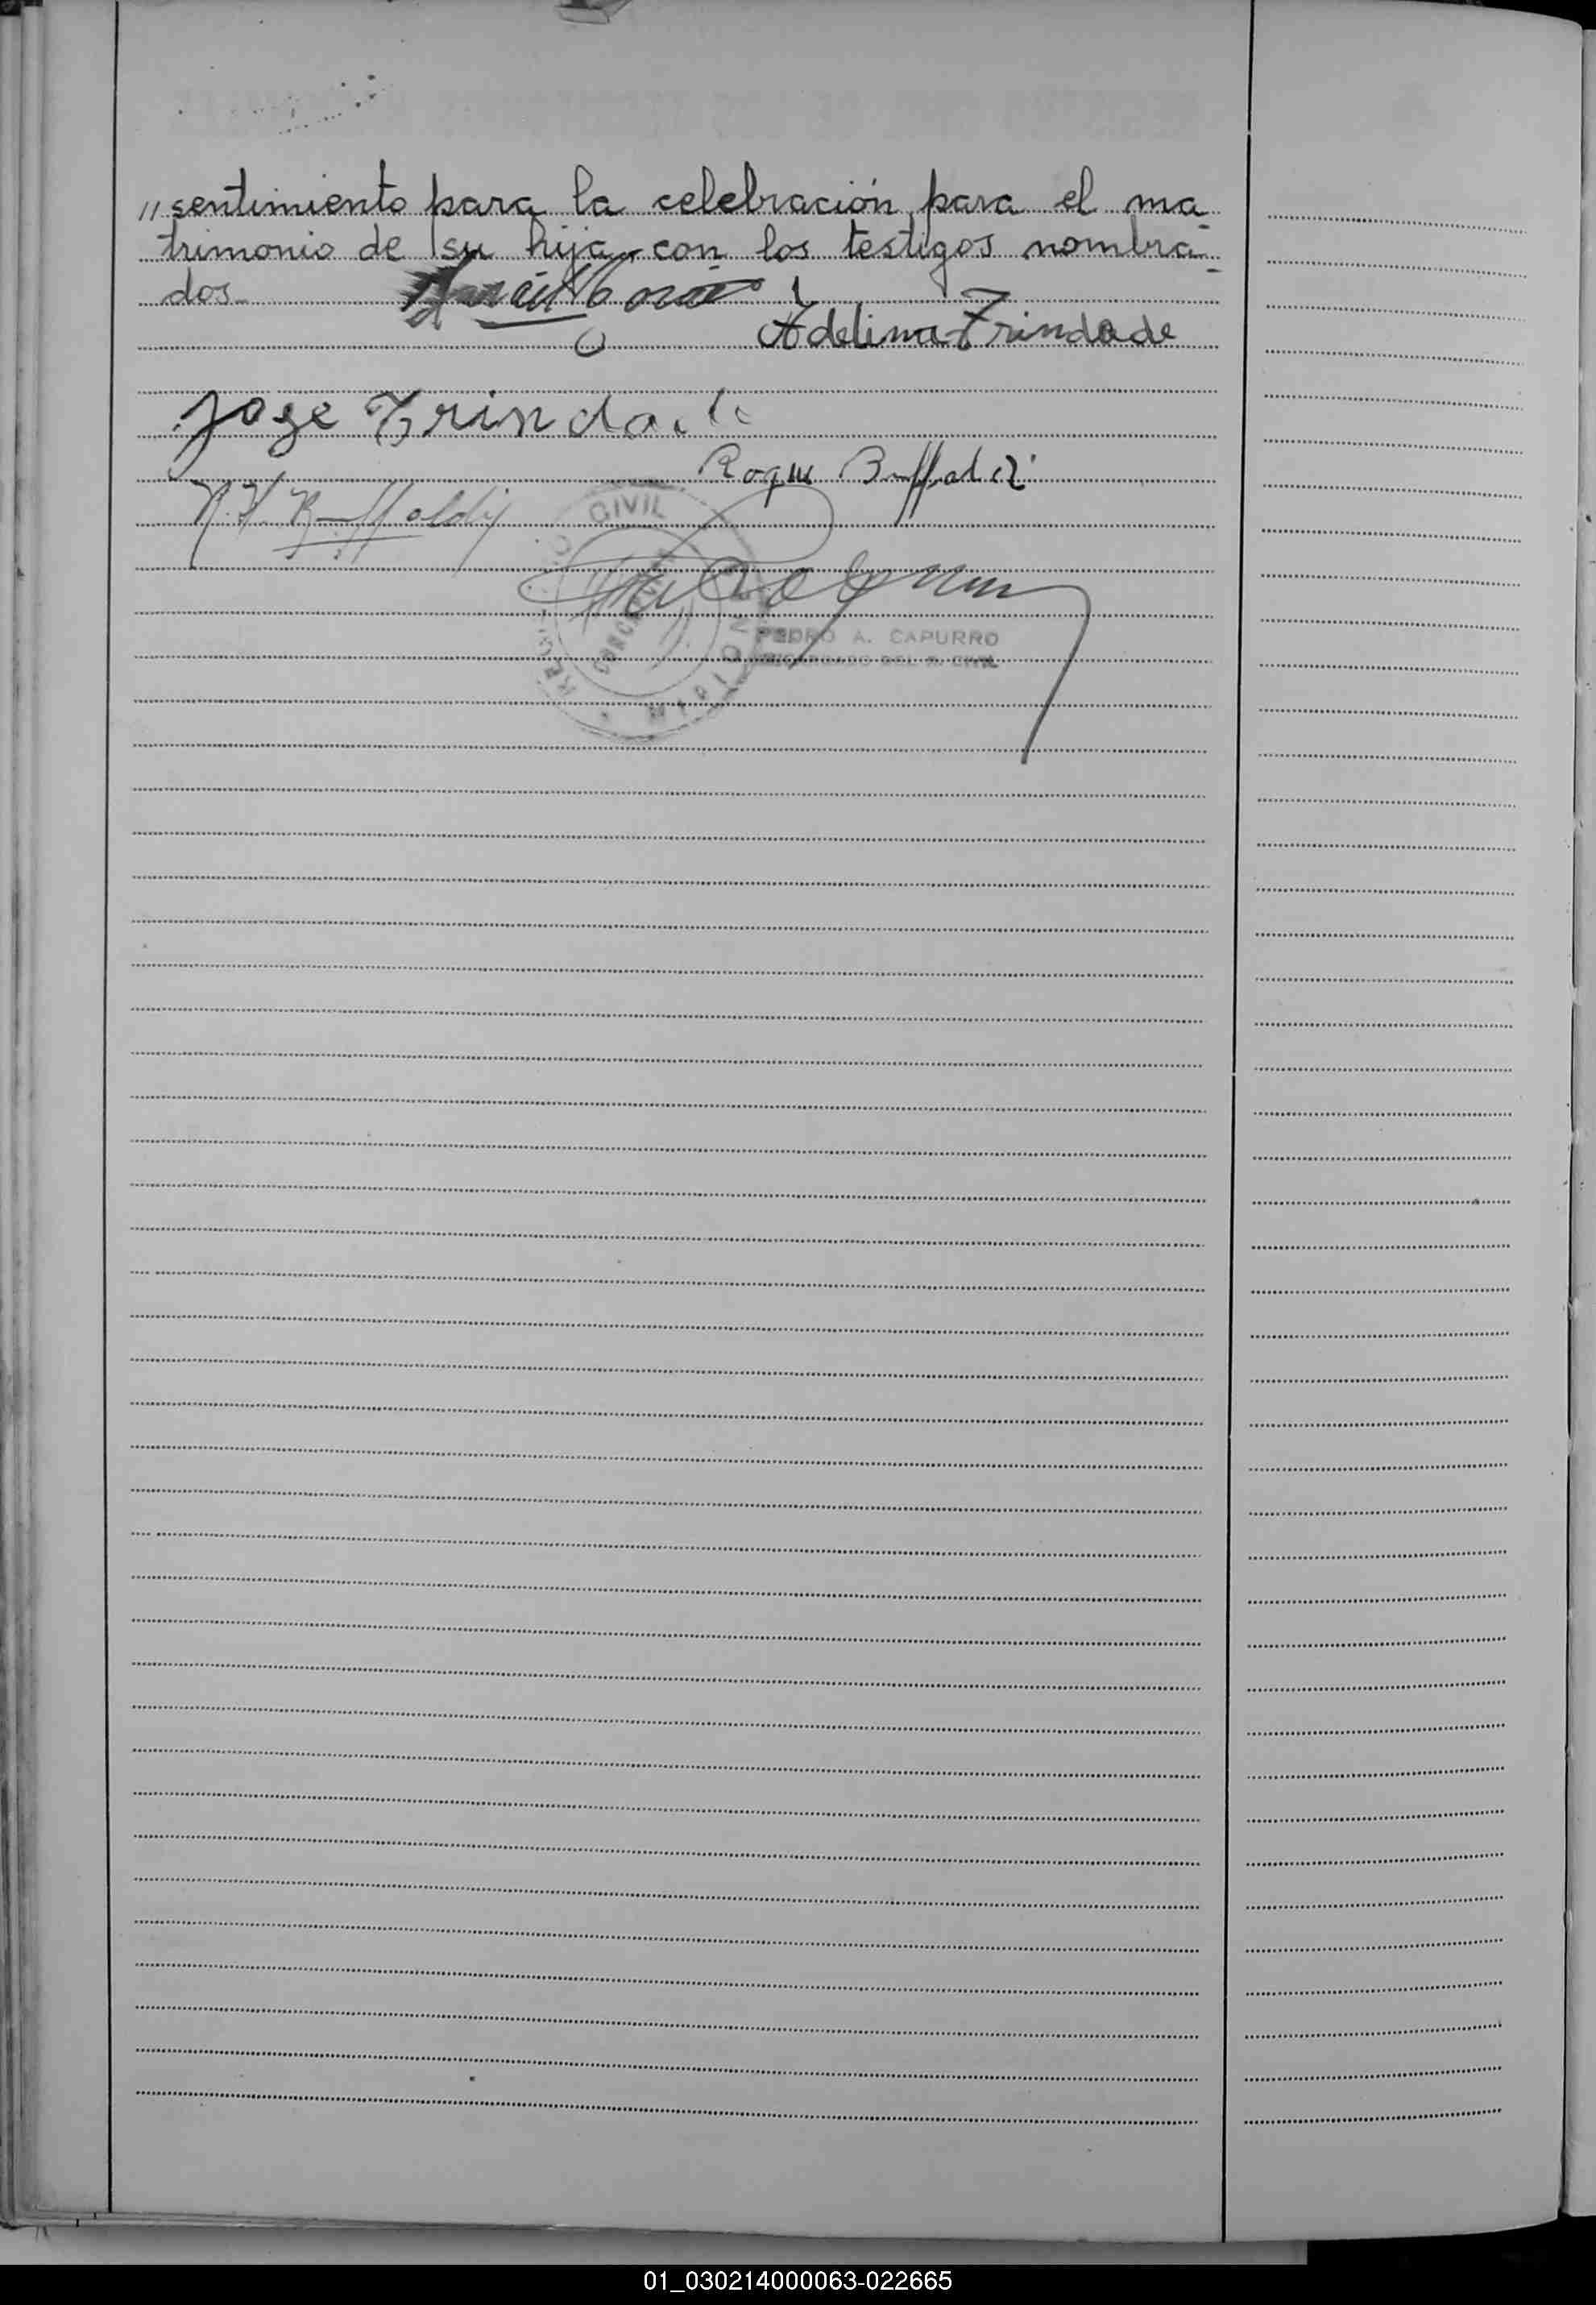 "sentimiento para la celebración para el ma-
trimonio de su hija con los testigos nombra-
dos
Adelina Trindade
Jose Trindade
Roque Buffaldi
N. Buffoldi
CIVIL
PEDRO A. CAPURRO
ENCARGADO DEL R. CIVIL
01_030214000063-022665